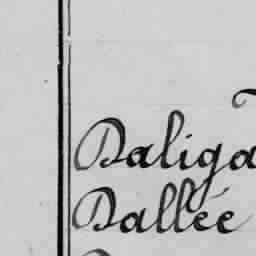 Daliga
Dallée